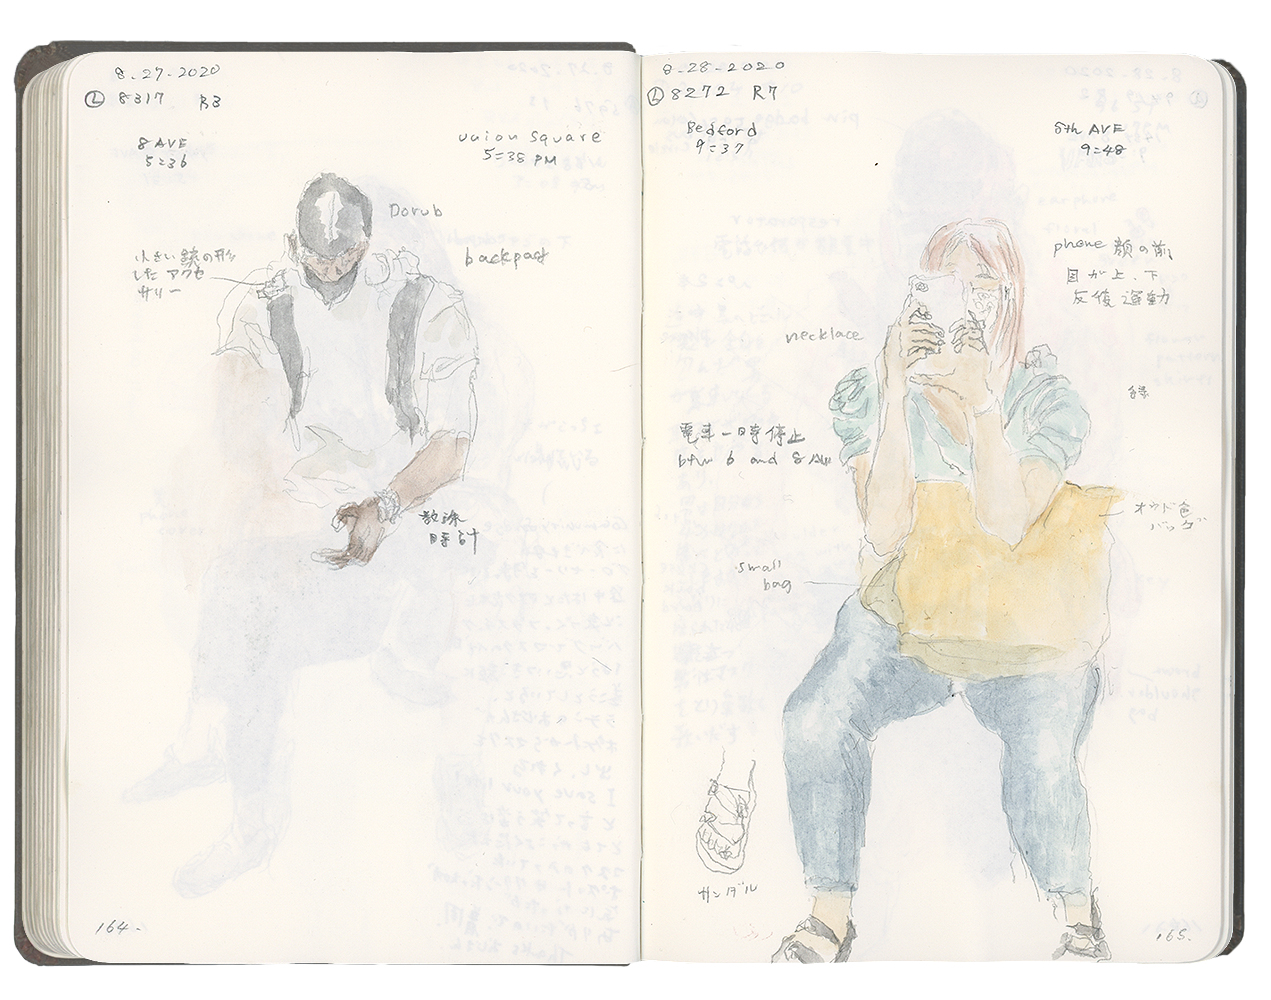 8-27-2020
Ⓛ 8317 R3
8 AVE
5:36
union square
5:38 PM
Dorub
backpack
小さい銃の形
したアクセ
サリー
時計
164-
8-28-2020
Ⓛ 8272 R7
Bedford
9:37
8th AVE
9:48
phone 顔の前
目が上、下
反復運動
necklace
緑
電車一時停止
btw 6 and 8 AVE
オウド色
バッグ
small
bag
サンダル
165.